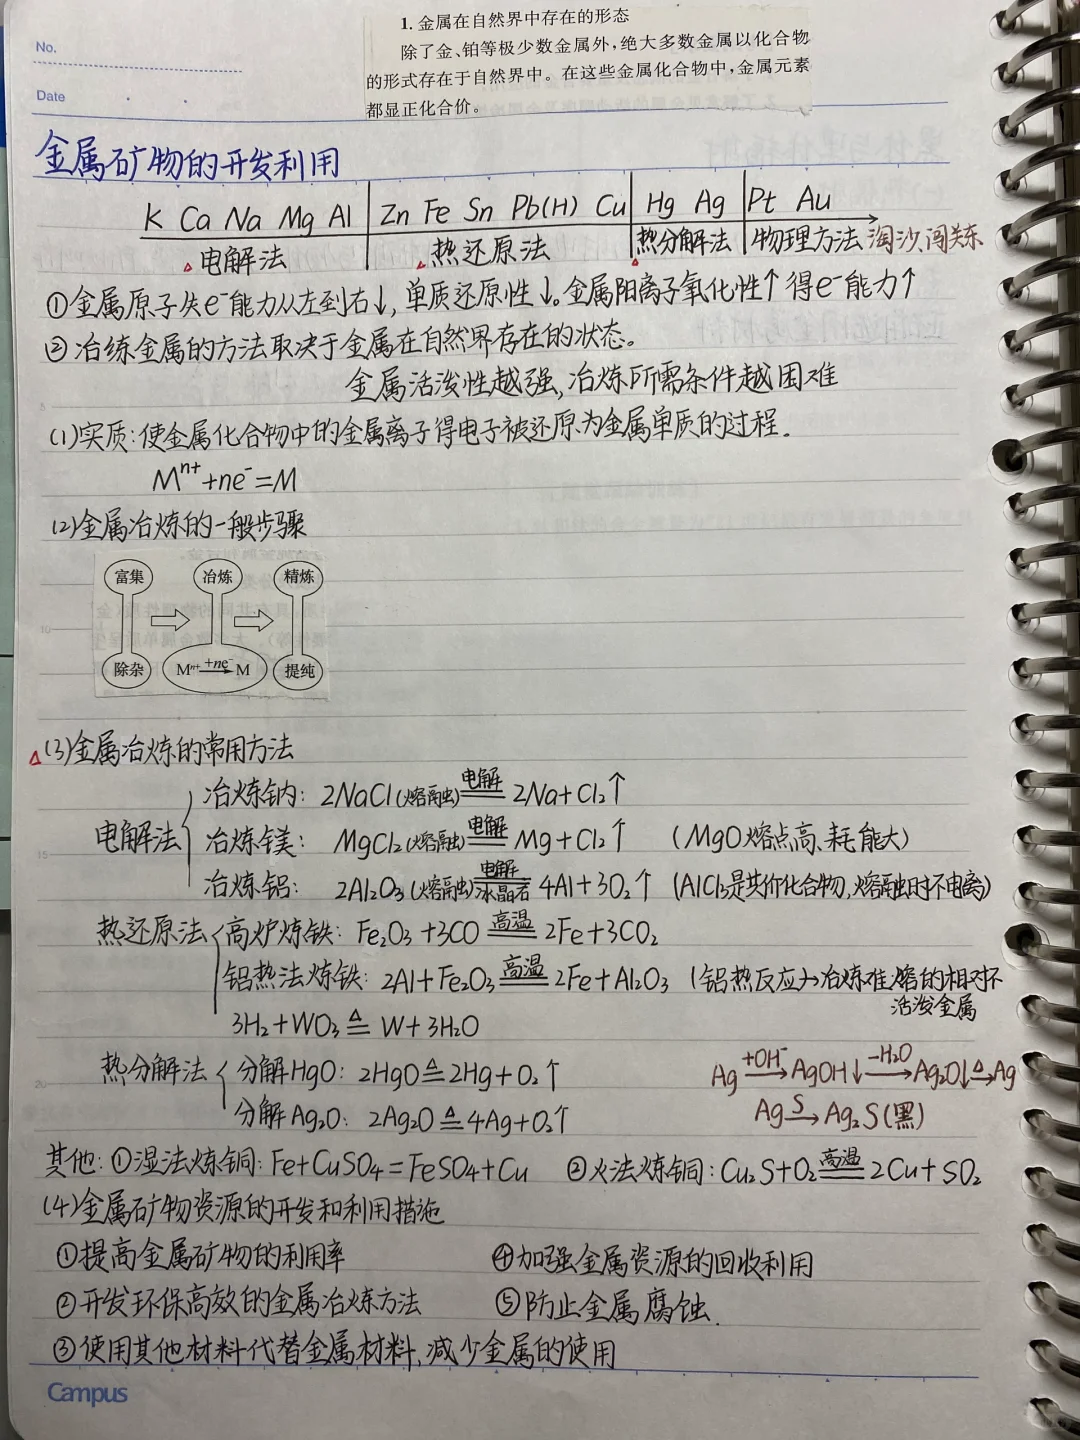 No.
Date
1. 金属在自然界中存在的形态
除了金、铂等极少数金属外,绝大多数金属以化合物
的形式存在于自然界中。在这些金属化合物中,金属元素
都显正化合价。
金属矿物的开发利用
K Ca Na Mg Al Zn Fe Sn Pb(H) Cu Hg Ag Pt Au
△电解法 △热还原法 △热分解法 物理方法 淘沙、闯关东
①金属原子失e⁻能力从左到右↓,单质还原性↓。金属阳离子氧化性↑得e⁻能力↑
②冶练金属的方法取决于金属在自然界存在的状态。
金属活泼性越强,冶炼所需条件越困难
(1)实质:使金属化合物中的金属离子得电子被还原为金属单质的过程.
Mⁿ⁺+ne⁻=M
(2)金属冶炼的一般步骤
富集 冶炼 精炼
除杂 Mⁿ⁺ +ne⁻ M 提纯
△(3)金属冶炼的常用方法
电解法 冶炼钠: 2NaCl(熔融) 电解 2Na+Cl₂↑
冶炼镁: MgCl₂(熔融) 电解 Mg+Cl₂↑ (MgO熔点高、耗能大)
冶炼铝: 2Al₂O₃(熔融) 电解 冰晶石 4Al+3O₂↑ (AlCl₃是共价化合物,熔融时不电离)
热还原法 高炉炼铁: Fe₂O₃+3CO 高温 2Fe+3CO₂
铝热法炼铁: 2Al+Fe₂O₃ 高温 2Fe+Al₂O₃ (铝热反应→冶炼难熔的相对不
活泼金属
3H₂+WO₃ △ W+3H₂O
热分解法 分解HgO: 2HgO △ 2Hg+O₂↑
分解Ag₂O: 2Ag₂O △ 4Ag+O₂↑
Ag +OH⁻→ AgOH↓ -H₂O→ Ag₂O↓ △→ Ag
Ag S→ Ag₂S(黑)
其他:①湿法炼铜: Fe+CuSO₄=FeSO₄+Cu ②火法炼铜: Cu₂S+O₂ 高温 2Cu+SO₂
(4)金属矿物资源的开发和利用措施
①提高金属矿物的利用率 ④加强金属资源的回收利用
②开发环保高效的金属冶炼方法 ⑤防止金属腐蚀.
③使用其他材料代替金属材料,减少金属的使用
Campus